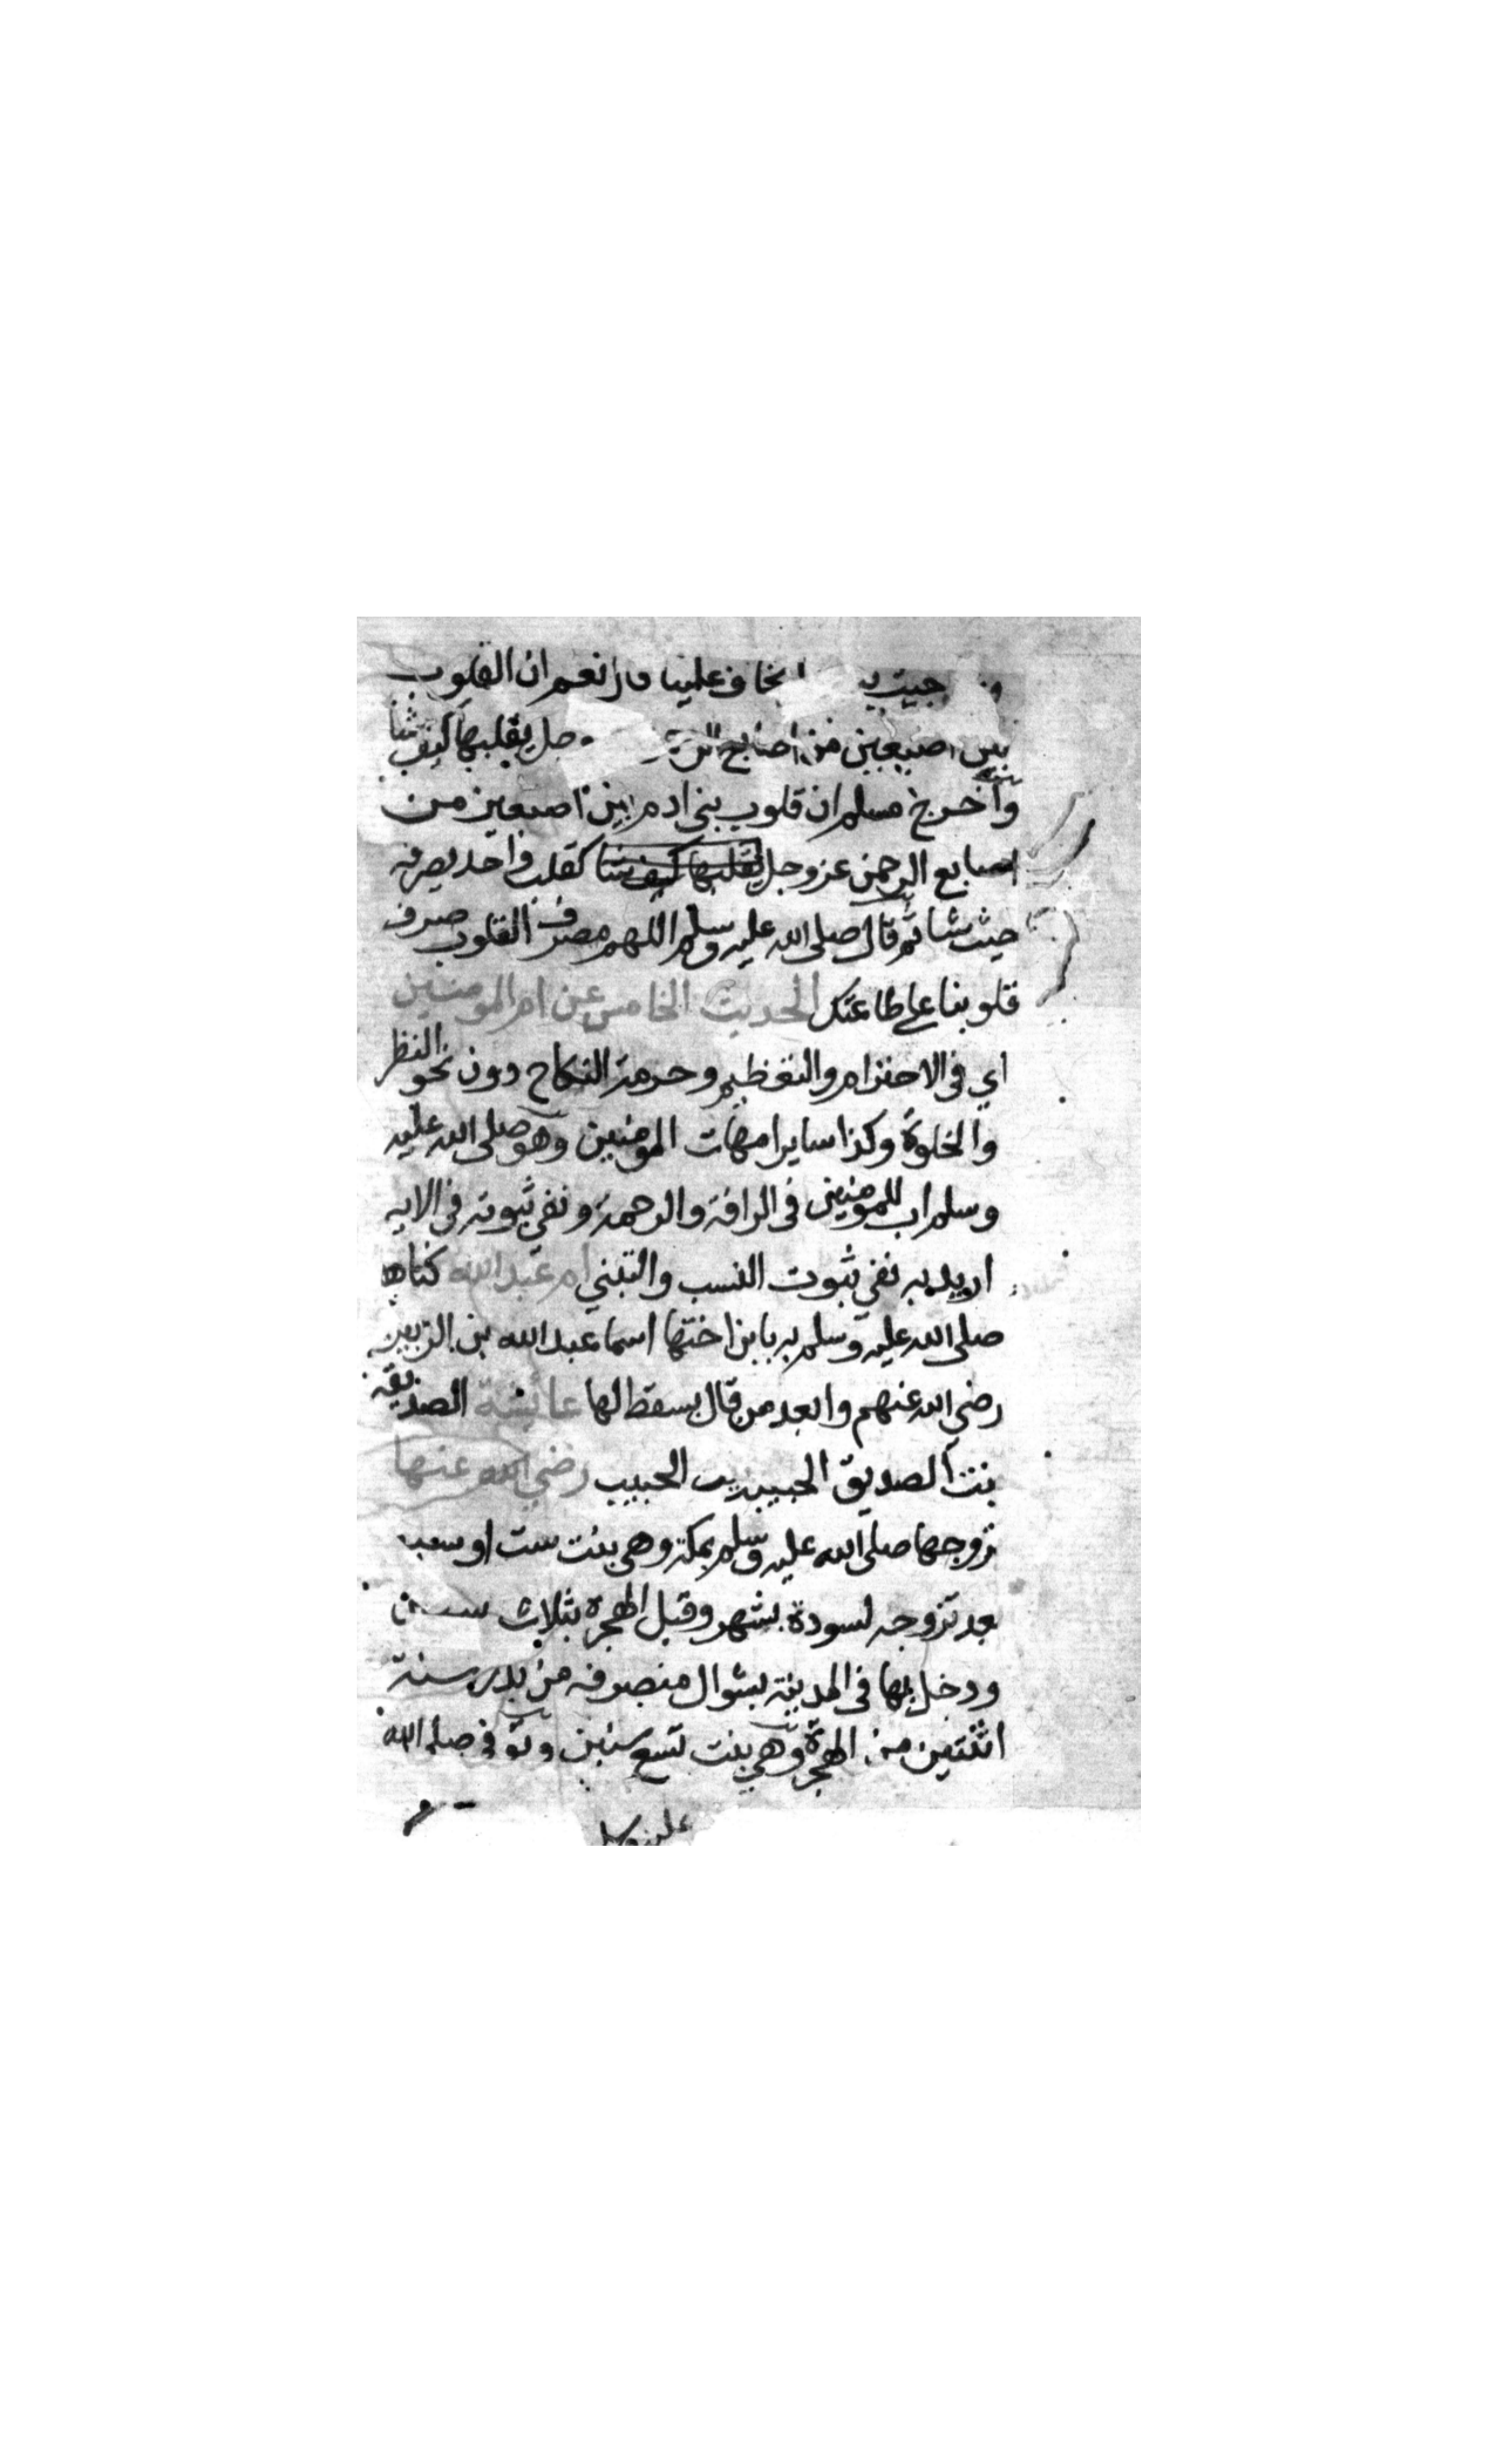 جيت به تخاف علينا قال نعم ان القلوب
بين اصبعين من اصابع وجل يقلبها كيف شا
واخرج مسلم ان قلوب بني ادم بين اصبعين من
اصابع الرحمن عز وجل يقلبها كيف شا كقلب واحد يصرفه
حيث شا ثم قال صلى الله عليه وسلم اللهم مصرف القلوب صرف
قلوبنا على طاعتك الحديث الخامس عن ام المومنين
اي في الاحترام والتعظيم وحرمة النكاح دون نحو النظر
والخلوة وكذا ساير امهات المومنين وهو صلى الله عليه
وسلم اب للمومنين في الرافة والرحمة ونفي ثبوته في الايه
اريد به نفي ثبوت النسب والتبني ام عبد الله كناها
صلى الله عليه وسلم به بابن اختها اسما عبد الله بن الزبير
رضي الله عنهم وابعد من قال بسقط لها عائشة الصديقة
بنت الصديق الحبيبة بنت الحبيب رضي الله عنها
تزوجها صلى الله عليه وسلم بمكة وهي بنت ست او سبع
بعد تزوجه لسودة بشهر وقبل الهجرة بثلاث سنين
ودخل بها في المدينة بشوال منصرفه من بدر سنة
اثنتين من الهجرة وهي بنت تسع سنين وتوفي صلى الله
عليه وسلم